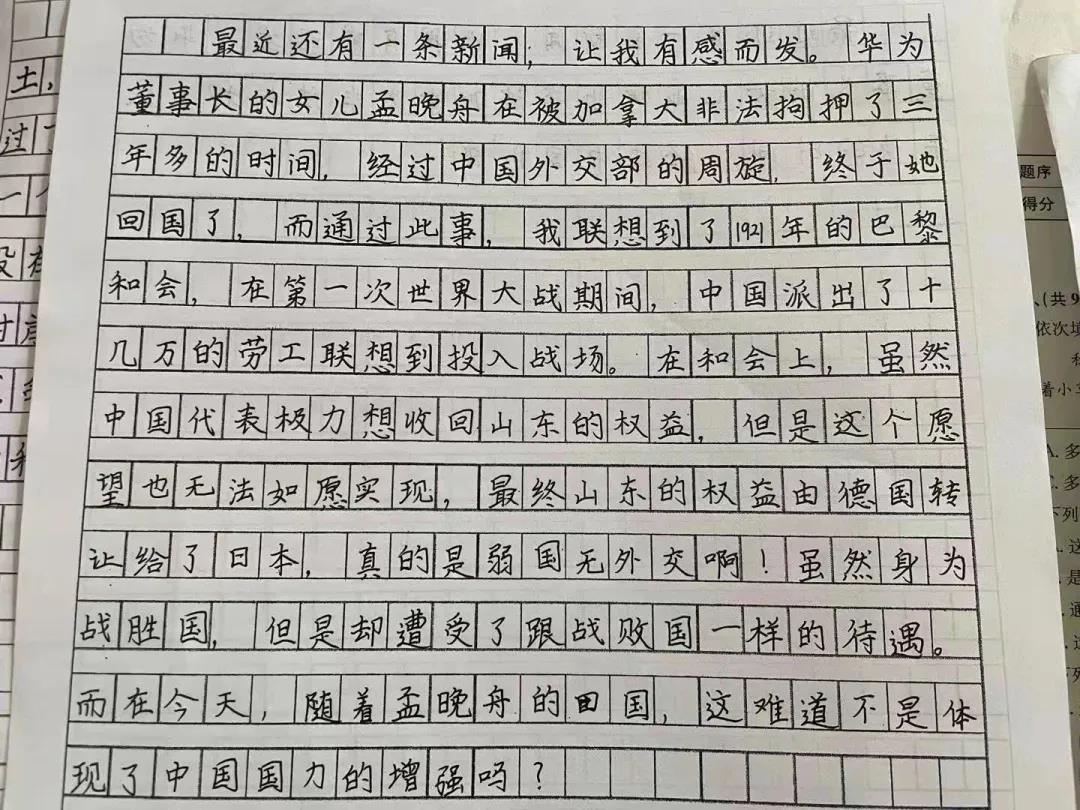 最近还有一条新闻，让我有感而发。华为
董事长的女儿孟晚舟在被加拿大非法拘押了三
年多的时间，经过中国外交部的周旋，终于她
回国了，而通过此事，我联想到了1921年的巴黎
和会，在第一次世界大战期间，中国派出了十
几万的劳工联想到投入战场。在和会上，虽然
中国代表极力想收回山东的权益，但是这个愿
望也无法如愿实现，最终山东的权益由德国转
让给了日本，真的是弱国无外交啊！虽然身为
战胜国，但是却遭受了跟战败国一样的待遇。
而在今天，随着孟晚舟的回国，这难道不是体
现了中国国力的增强吗？
土，
题序
得分
（共9
依次填